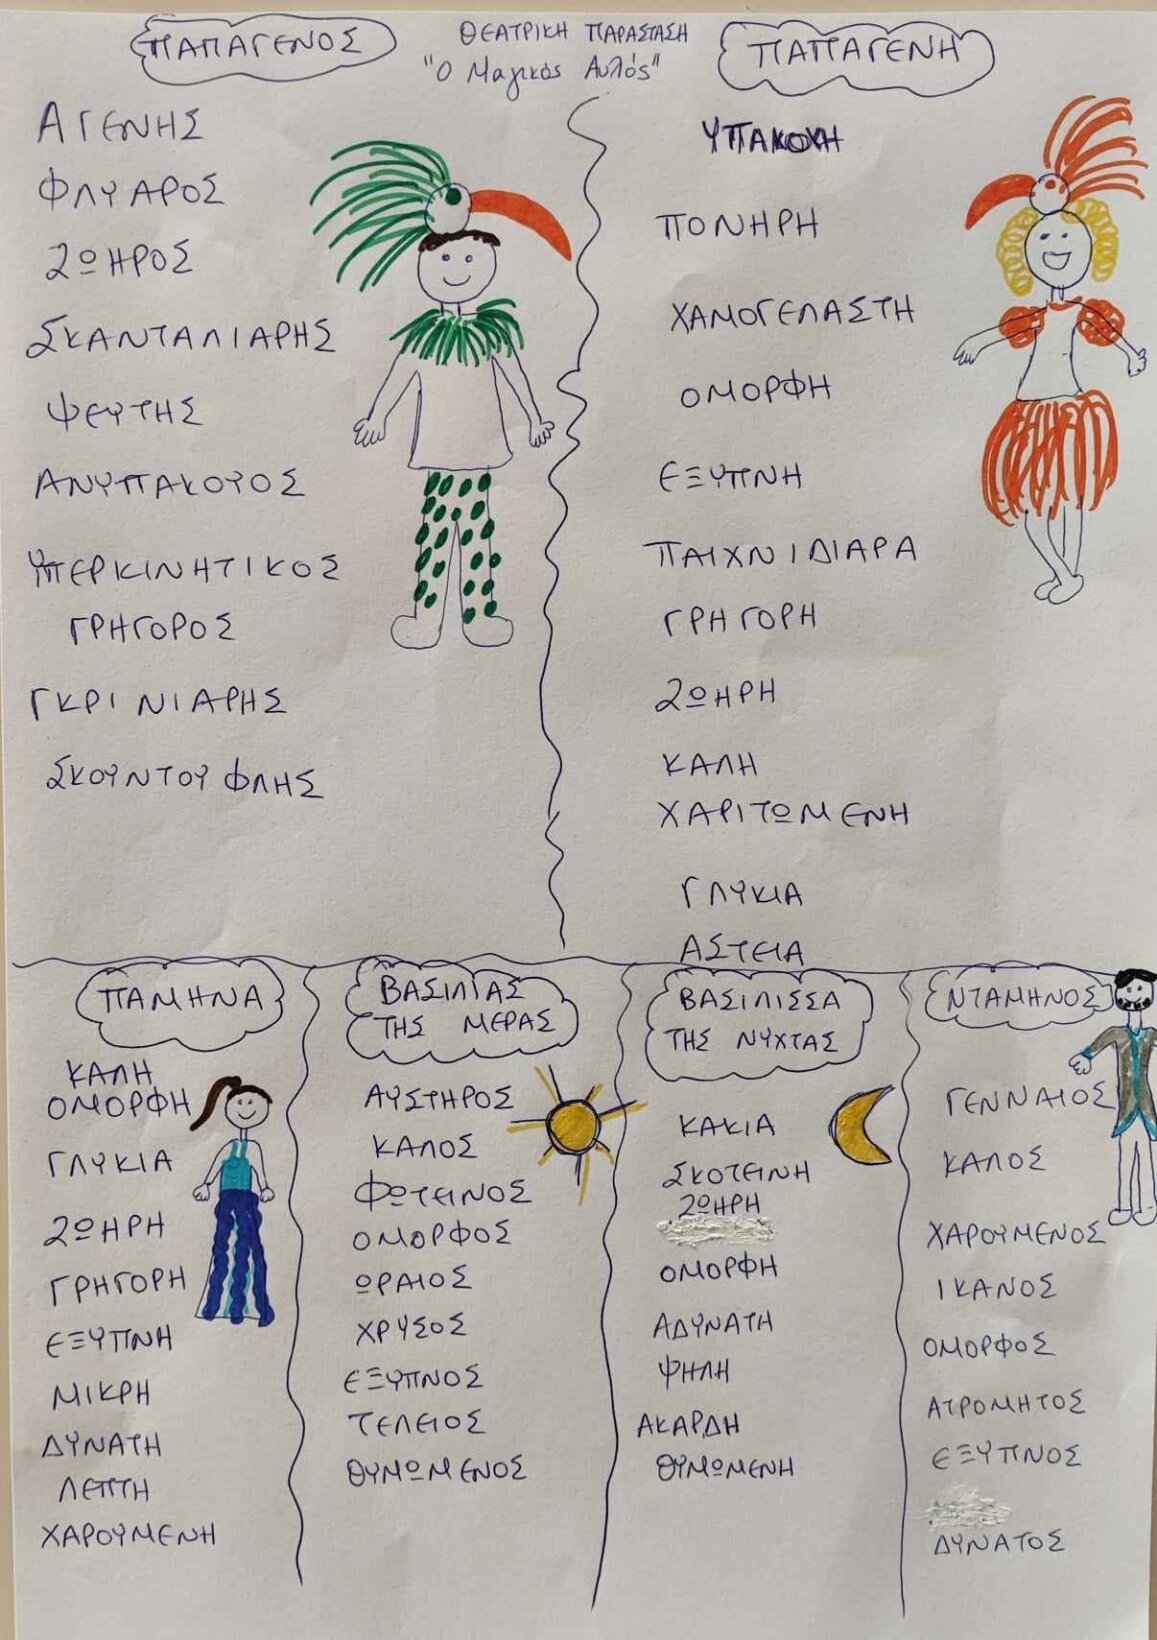 ΠΑΠΑΓΕΝΟΣ
ΘΕΑΤΡΙΚΗ ΠΑΡΑΣΤΑΣΗ
"Ο Μαγικός Αυλός"
ΠΑΠΑΓΕΝΗ
ΑΓΕΝΗΣ
ΦΛΥΑΡΟΣ
ΖΩΗΡΟΣ
ΣΚΑΝΤΑΛΙΑΡΗΣ
ΨΕΥΤΗΣ
ΑΝΥΠΑΚΟΥΟΣ
ΥΠΕΡΚΙΝΗΤΙΚΟΣ
ΓΡΗΓΟΡΟΣ
ΓΚΡΙΝΙΑΡΗΣ
ΣΚΟΥΝΤΟΥΦΛΗΣ
ΠΟΝΗΡΗ
ΧΑΜΟΓΕΛΑΣΤΗ
ΟΜΟΡΦΗ
ΕΞΥΠΝΗ
ΠΑΙΧΝΙΔΙΑΡΑ
ΓΡΗΓΟΡΗ
ΖΩΗΡΗ
ΚΑΛΗ
ΧΑΡΙΤΩΜΕΝΗ
ΓΛΥΚΙΑ
ΑΣΤΕΙΑ
ΠΑΜΗΝΑ
ΚΑΛΗ
ΟΜΟΡΦΗ
ΓΛΥΚΙΑ
ΖΩΗΡΗ
ΓΡΗΓΟΡΗ
ΕΞΥΠΝΗ
ΜΙΚΡΗ
ΔΥΝΑΤΗ
ΛΕΠΤΗ
ΧΑΡΟΥΜΕΝΗ
ΒΑΣΙΛΙΑΣ
ΤΗΣ ΜΕΡΑΣ
ΑΥΣΤΗΡΟΣ
ΚΑΛΟΣ
ΦΩΤΕΙΝΟΣ
ΟΜΟΡΦΟΣ
ΩΡΑΙΟΣ
ΧΡΥΣΟΣ
ΕΞΥΠΝΟΣ
ΤΕΛΕΙΟΣ
ΘΥΜΩΜΕΝΟΣ
ΒΑΣΙΛΙΣΣΑ
ΤΗΣ ΝΥΧΤΑΣ
ΚΑΚΙΑ
ΣΚΟΤΕΙΝΗ
ΖΩΗΡΗ
ΟΜΟΡΦΗ
ΑΔΥΝΑΤΗ
ΨΗΛΗ
ΑΚΑΡΔΗ
ΘΥΜΩΜΕΝΗ
ΝΤΑΜΗΝΟΣ
ΓΕΝΝΑΙΟΣ
ΚΑΛΟΣ
ΧΑΡΟΥΜΕΝΟΣ
ΙΚΑΝΟΣ
ΟΜΟΡΦΟΣ
ΑΤΡΟΜΗΤΟΣ
ΕΞΥΠΝΟΣ
ΔΥΝΑΤΟΣ